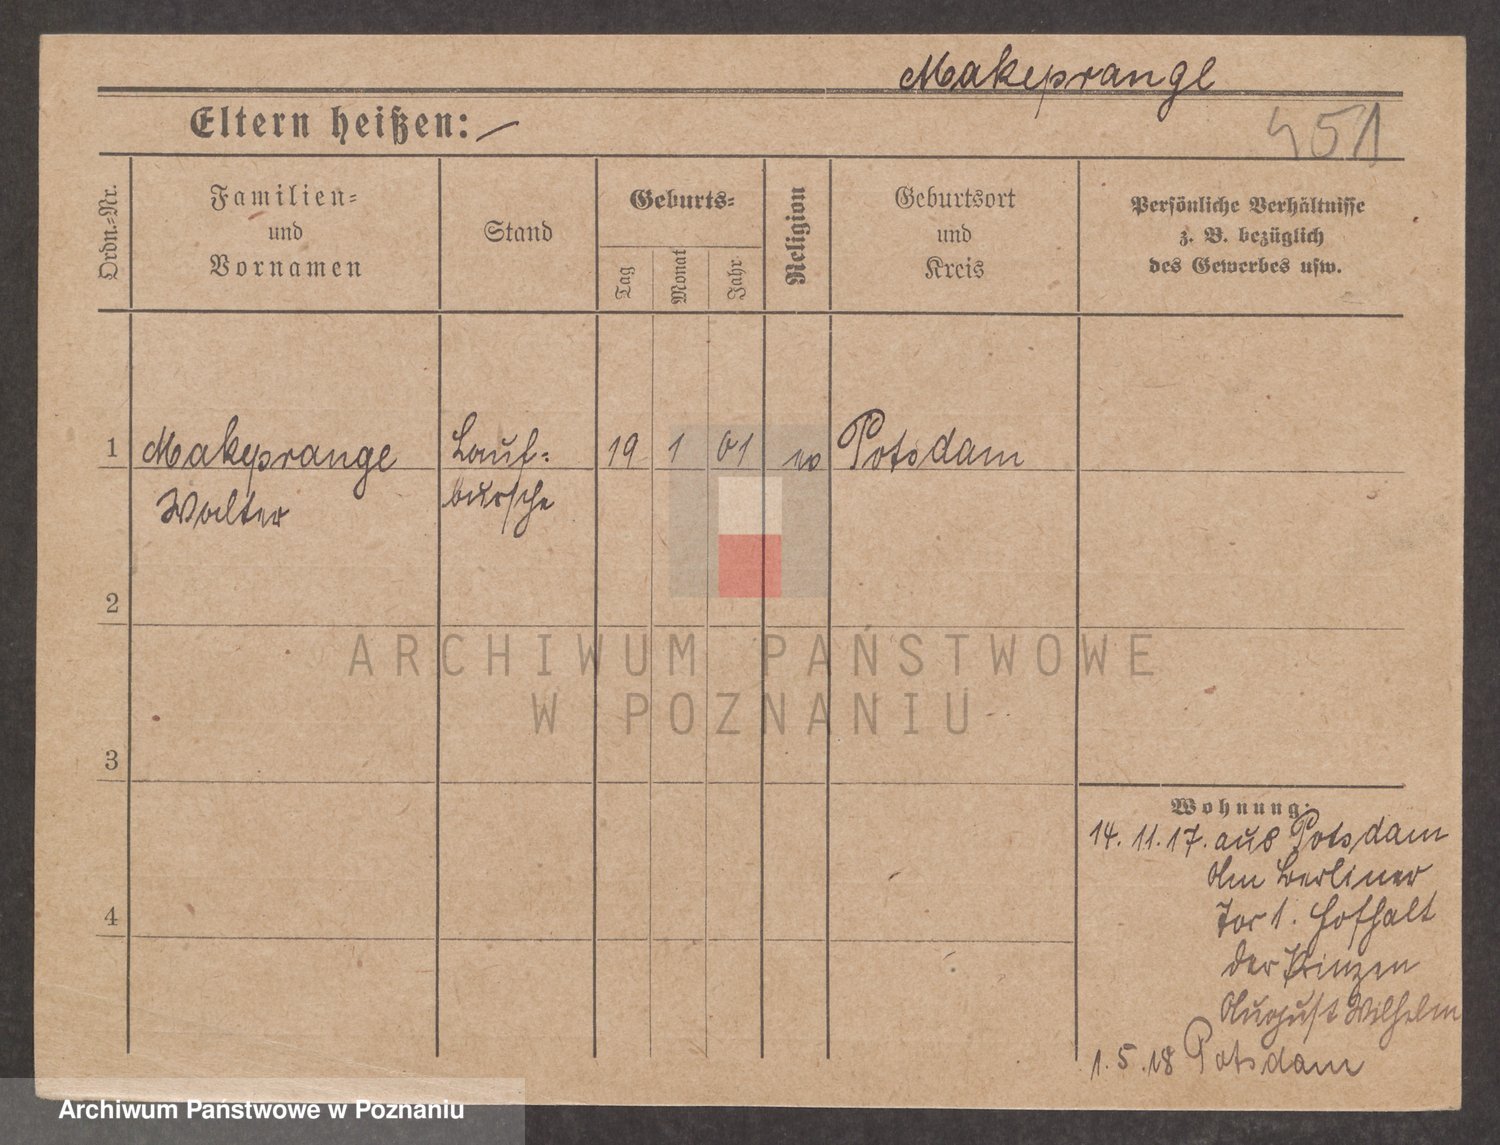 Makeprange
Eltern heißen: —
451
Ordn.-Nr.
Familien-
und
Vornamen
Stand
Geburts-
Tag
Monat
Jahr
Religion
Geburtsort
und
Kreis
Persönliche Verhältnisse
z. B. bezüglich
des Gewerbes usw.
1 Makeprange Lauf- 19 1 01 Potsdam
Walter bursche
2
3
4
Wohnung:
14. 11. 17. aus Potsdam
Am Berliner
Tor 1. Hofhalt
der Prinzen
August Wilhelm
1. 5. 18 Potsdam
ARCHIWUM PAŃSTWOWE
W POZNANIU
Archiwum Państwowe w Poznaniu